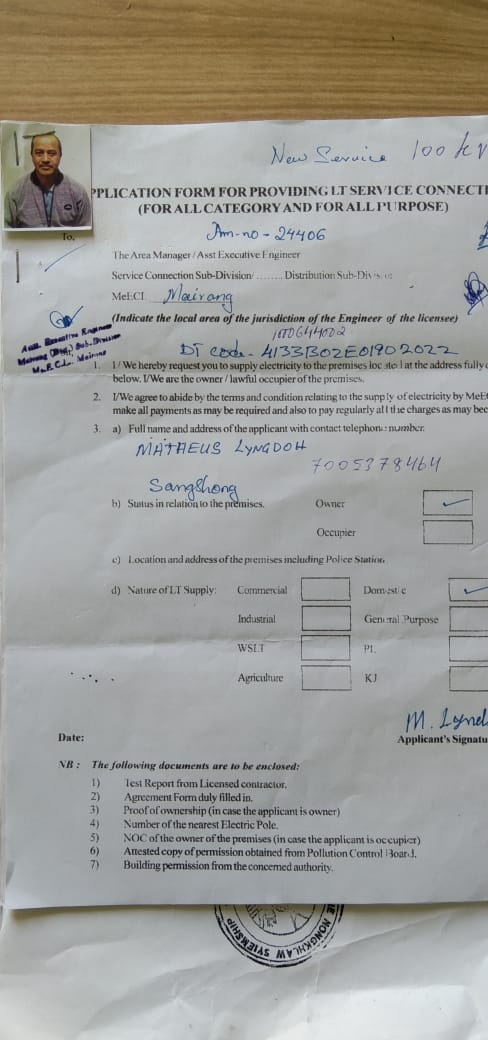 New Service 100 KV
PPLICATION FORM FOR PROVIDING LT SERVICE CONNECTI
(FOR ALL CATEGORY AND FOR ALL PURPOSE)
Am-no - 24406
To,
The Area Manager / Asst Executive Engineer
Service Connection Sub-Division/ ....... Distribution Sub-Division
MeECL Mairang
(Indicate the local area of the jurisdiction of the Engineer of the licensee)
Asstt. Executive Engineer
Mairang (Dist.) Sub-Division
M.e.E.C.L. Mairang
DT code - 4133B02E01902022
1. I / We hereby request you to supply electricity to the premises located at the address fully d
below. I/We are the owner / lawful occupier of the premises.
2. I/We agree to abide by the terms and condition relating to the supply of electricity by MeE
make all payments as may be required and also to pay regularly all the charges as may bec
3. a) Full name and address of the applicant with contact telephone number.
MATHEUS LYNGDOH
7005378464
Sangshong
b) Status in relation to the premises. Owner
Occupier
c) Location and address of the premises including Police Station.
d) Nature of LT Supply: Commercial Domestic
Industrial General Purpose
WSLT PL
Agriculture KJ
M. Lyngd
Date: Applicant's Signatu
NB : The following documents are to be enclosed:
1) Test Report from Licensed contractor.
2) Agreement Form duly filled in.
3) Proof of ownership (in case the applicant is owner)
4) Number of the nearest Electric Pole.
5) NOC of the owner of the premises (in case the applicant is occupier)
6) Attested copy of permission obtained from Pollution Control Board.
7) Building permission from the concerned authority.
NONGKHLAW SYIEMSHIP